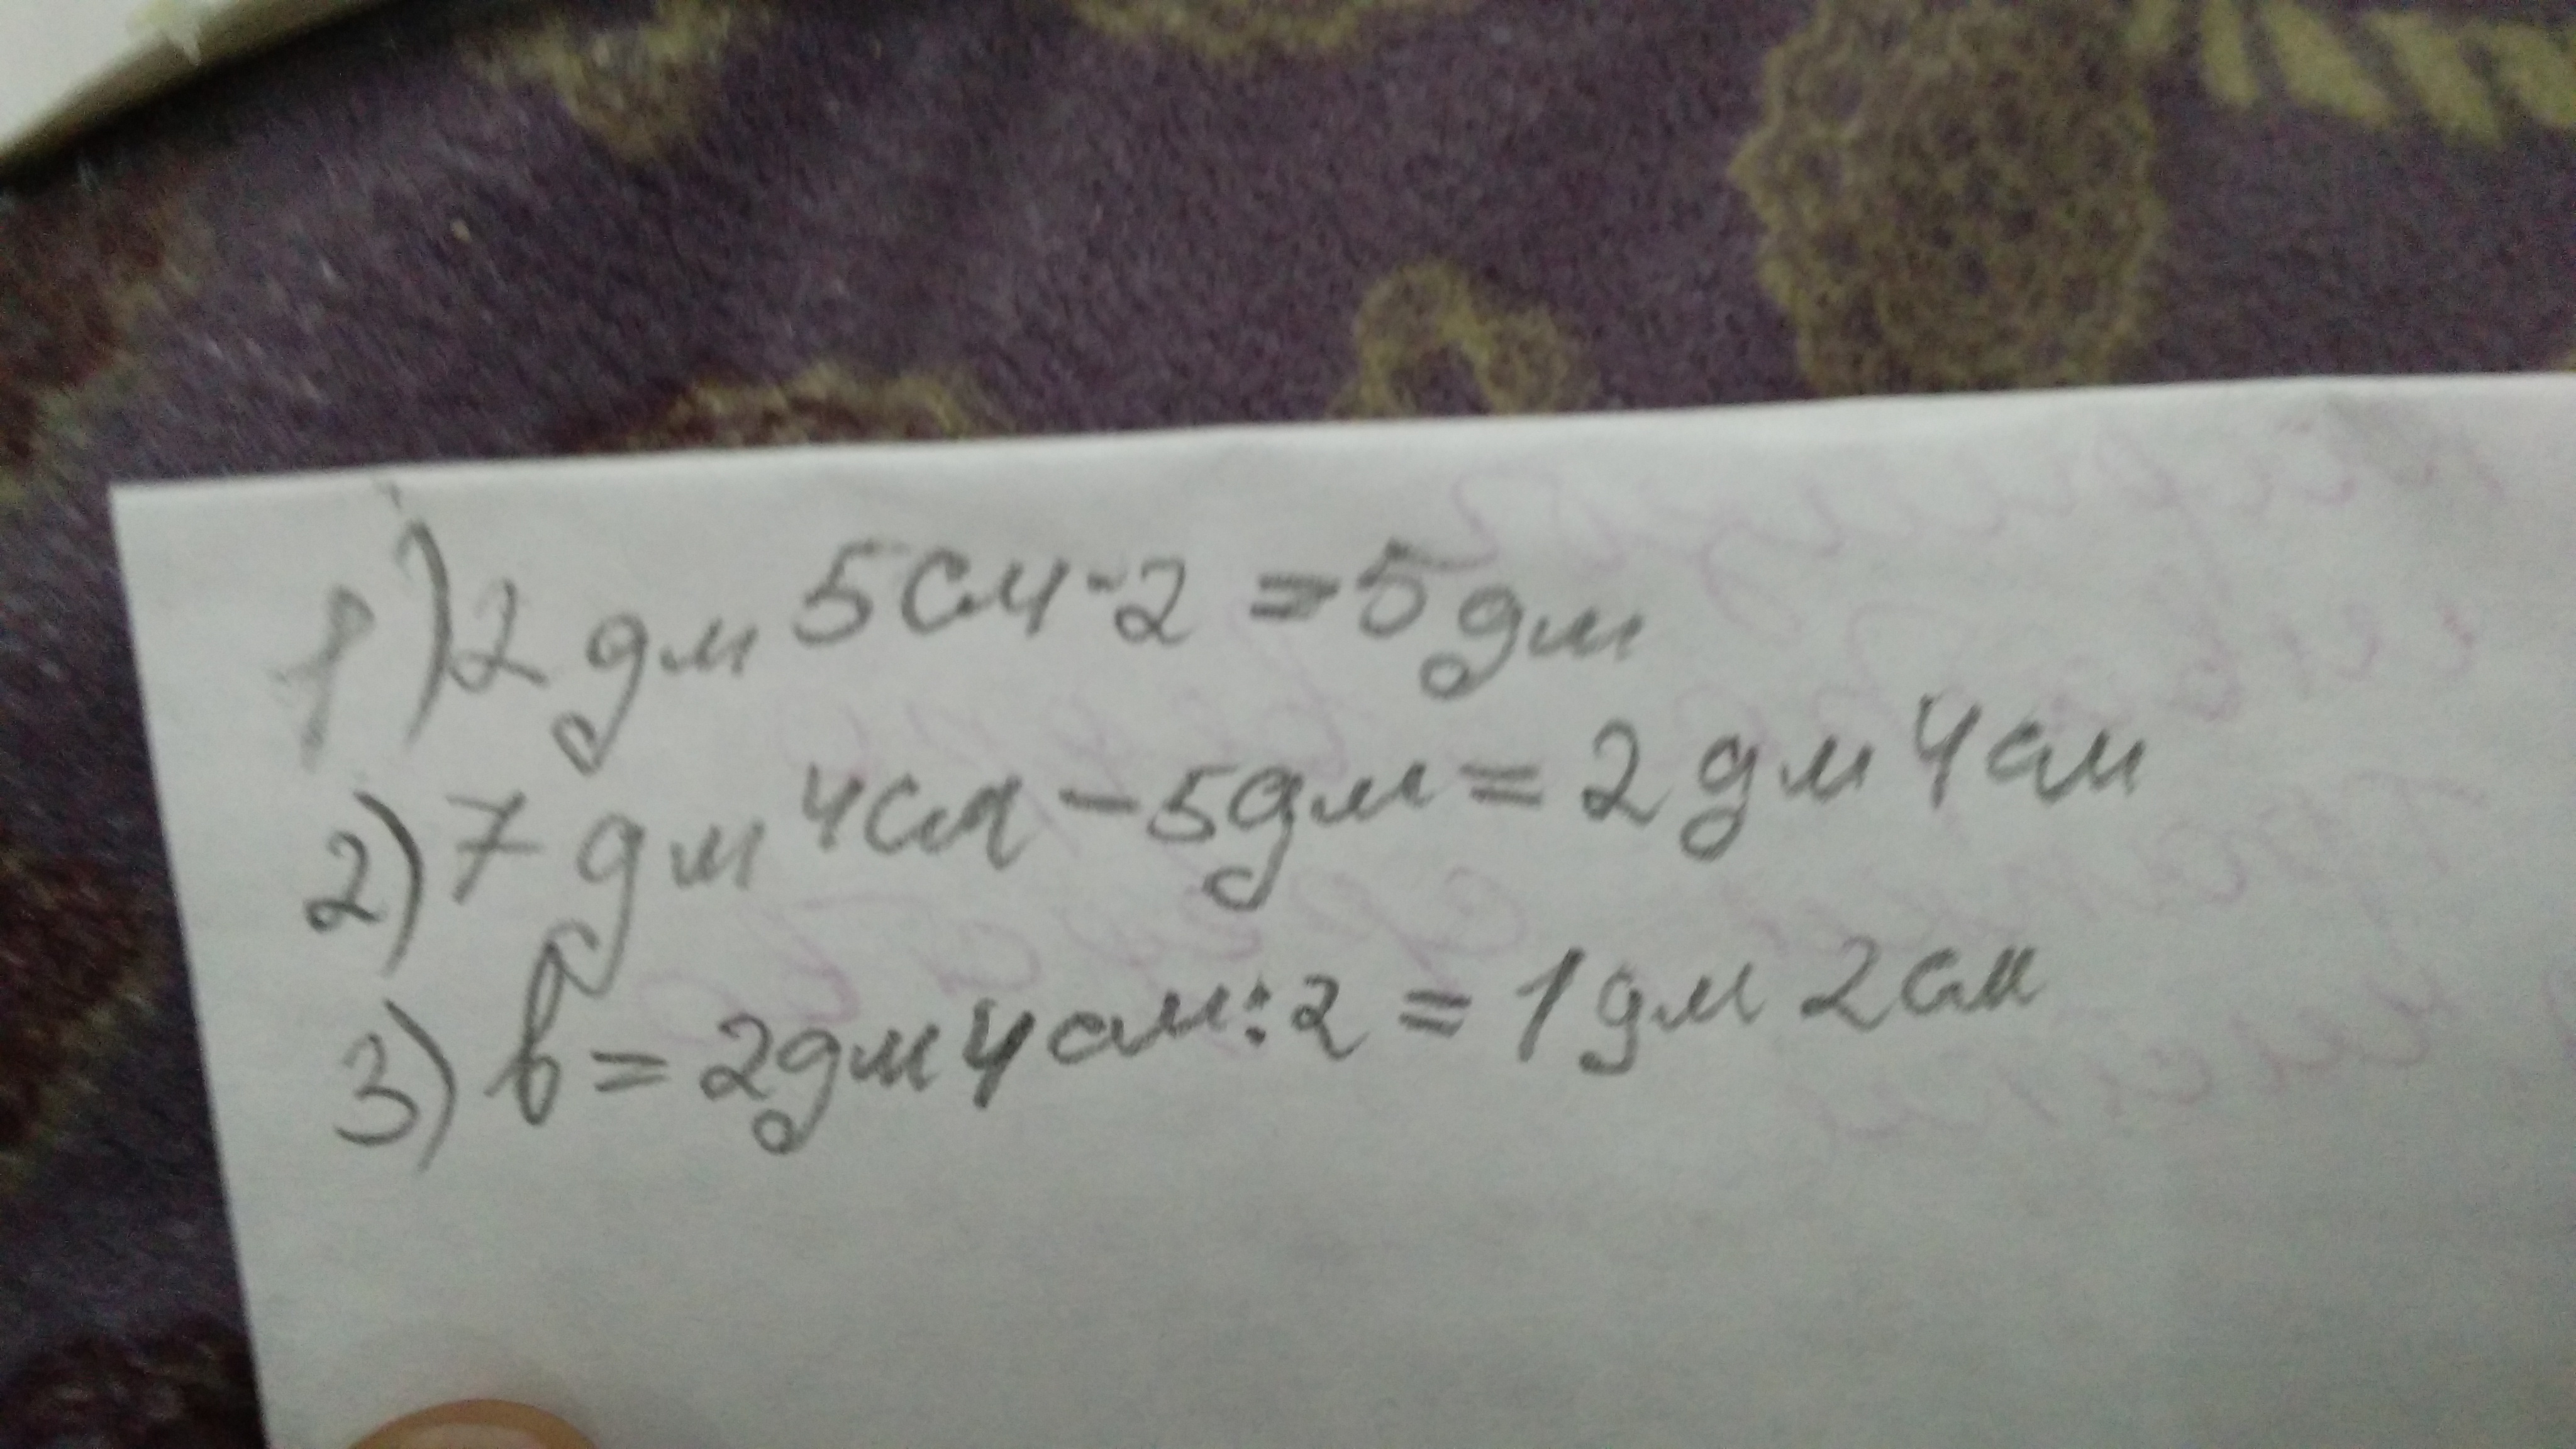 1) 2 дм 5 см · 2 = 5 дм
2) 7 дм 4 см − 5 дм = 2 дм 4 см
3) b = 2 дм 4 см : 2 = 1 дм 2 см